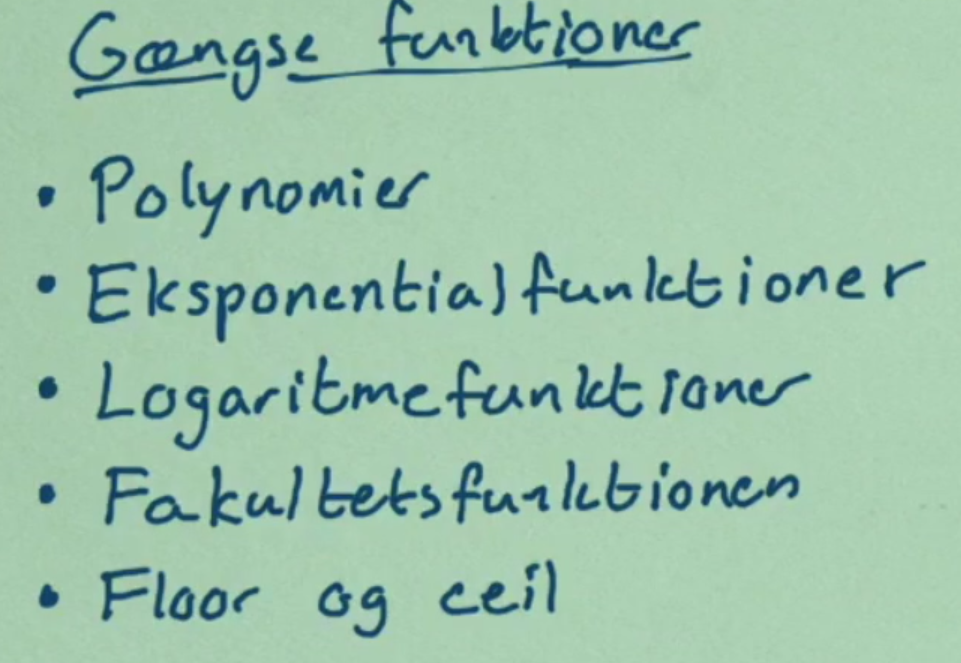 Gængse funktioner
• Polynomier
• Eksponentialfunktioner
• Logaritmefunktioner
• Fakultetsfunktionen
• Floor og ceil